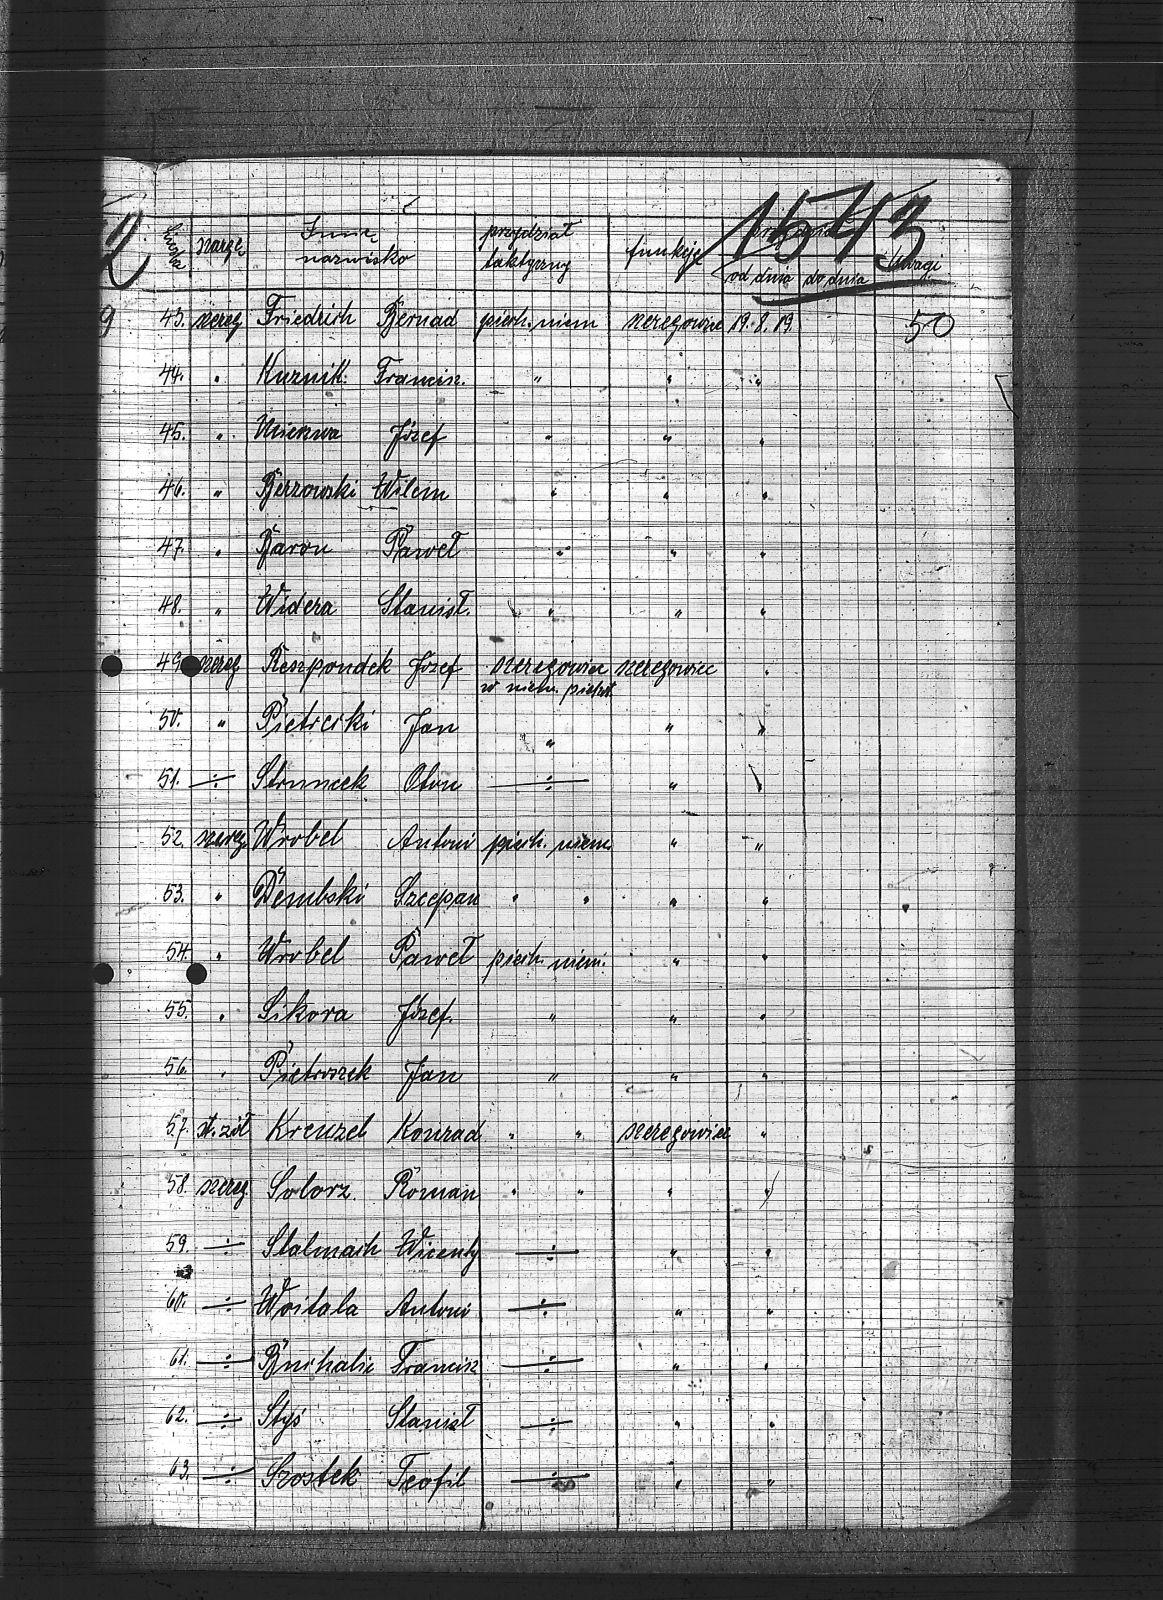 1543
Liczba szarże Imię nazwisko przydział taktyczny funkcję od dnia do dnia Uwagi
43. szereg Friedrich Bernad piech. niem szeregowiec 19.8.19 50
44. " Kuznik Francisz. " " "
45. " Józef " " "
46. " Berzowski Wilem " " "
47. " Baron Paweł " " "
48. " Widera Stanisł. " " "
49. szereg Reszpondek Józef szeregowiec szeregowiec "
w niem. piech.
50. " Jan " " "
51. ÷ Strumcek Oton ÷ " "
52. szereg Wrobel Antoni piech. niem. " "
53. " Dembski Szczepan " " " "
54. " Wrobel Paweł piech. niem. " "
55. " Sikora Józef. " " "
56. " Pietroszek Jan " " "
57. st. żoł Kreuzel Konrad " " szeregowiec "
58. szereg. Solorz Roman " " " "
59. ÷ Stalmach Wicenty ÷ " "
60. ÷ Woitala Antoni ÷ " "
61. ÷ Buchalic Francisz ÷ " "
62. ÷ Styś Stanisł ÷ " "
63. ÷ Szostek Teofil ÷ " "